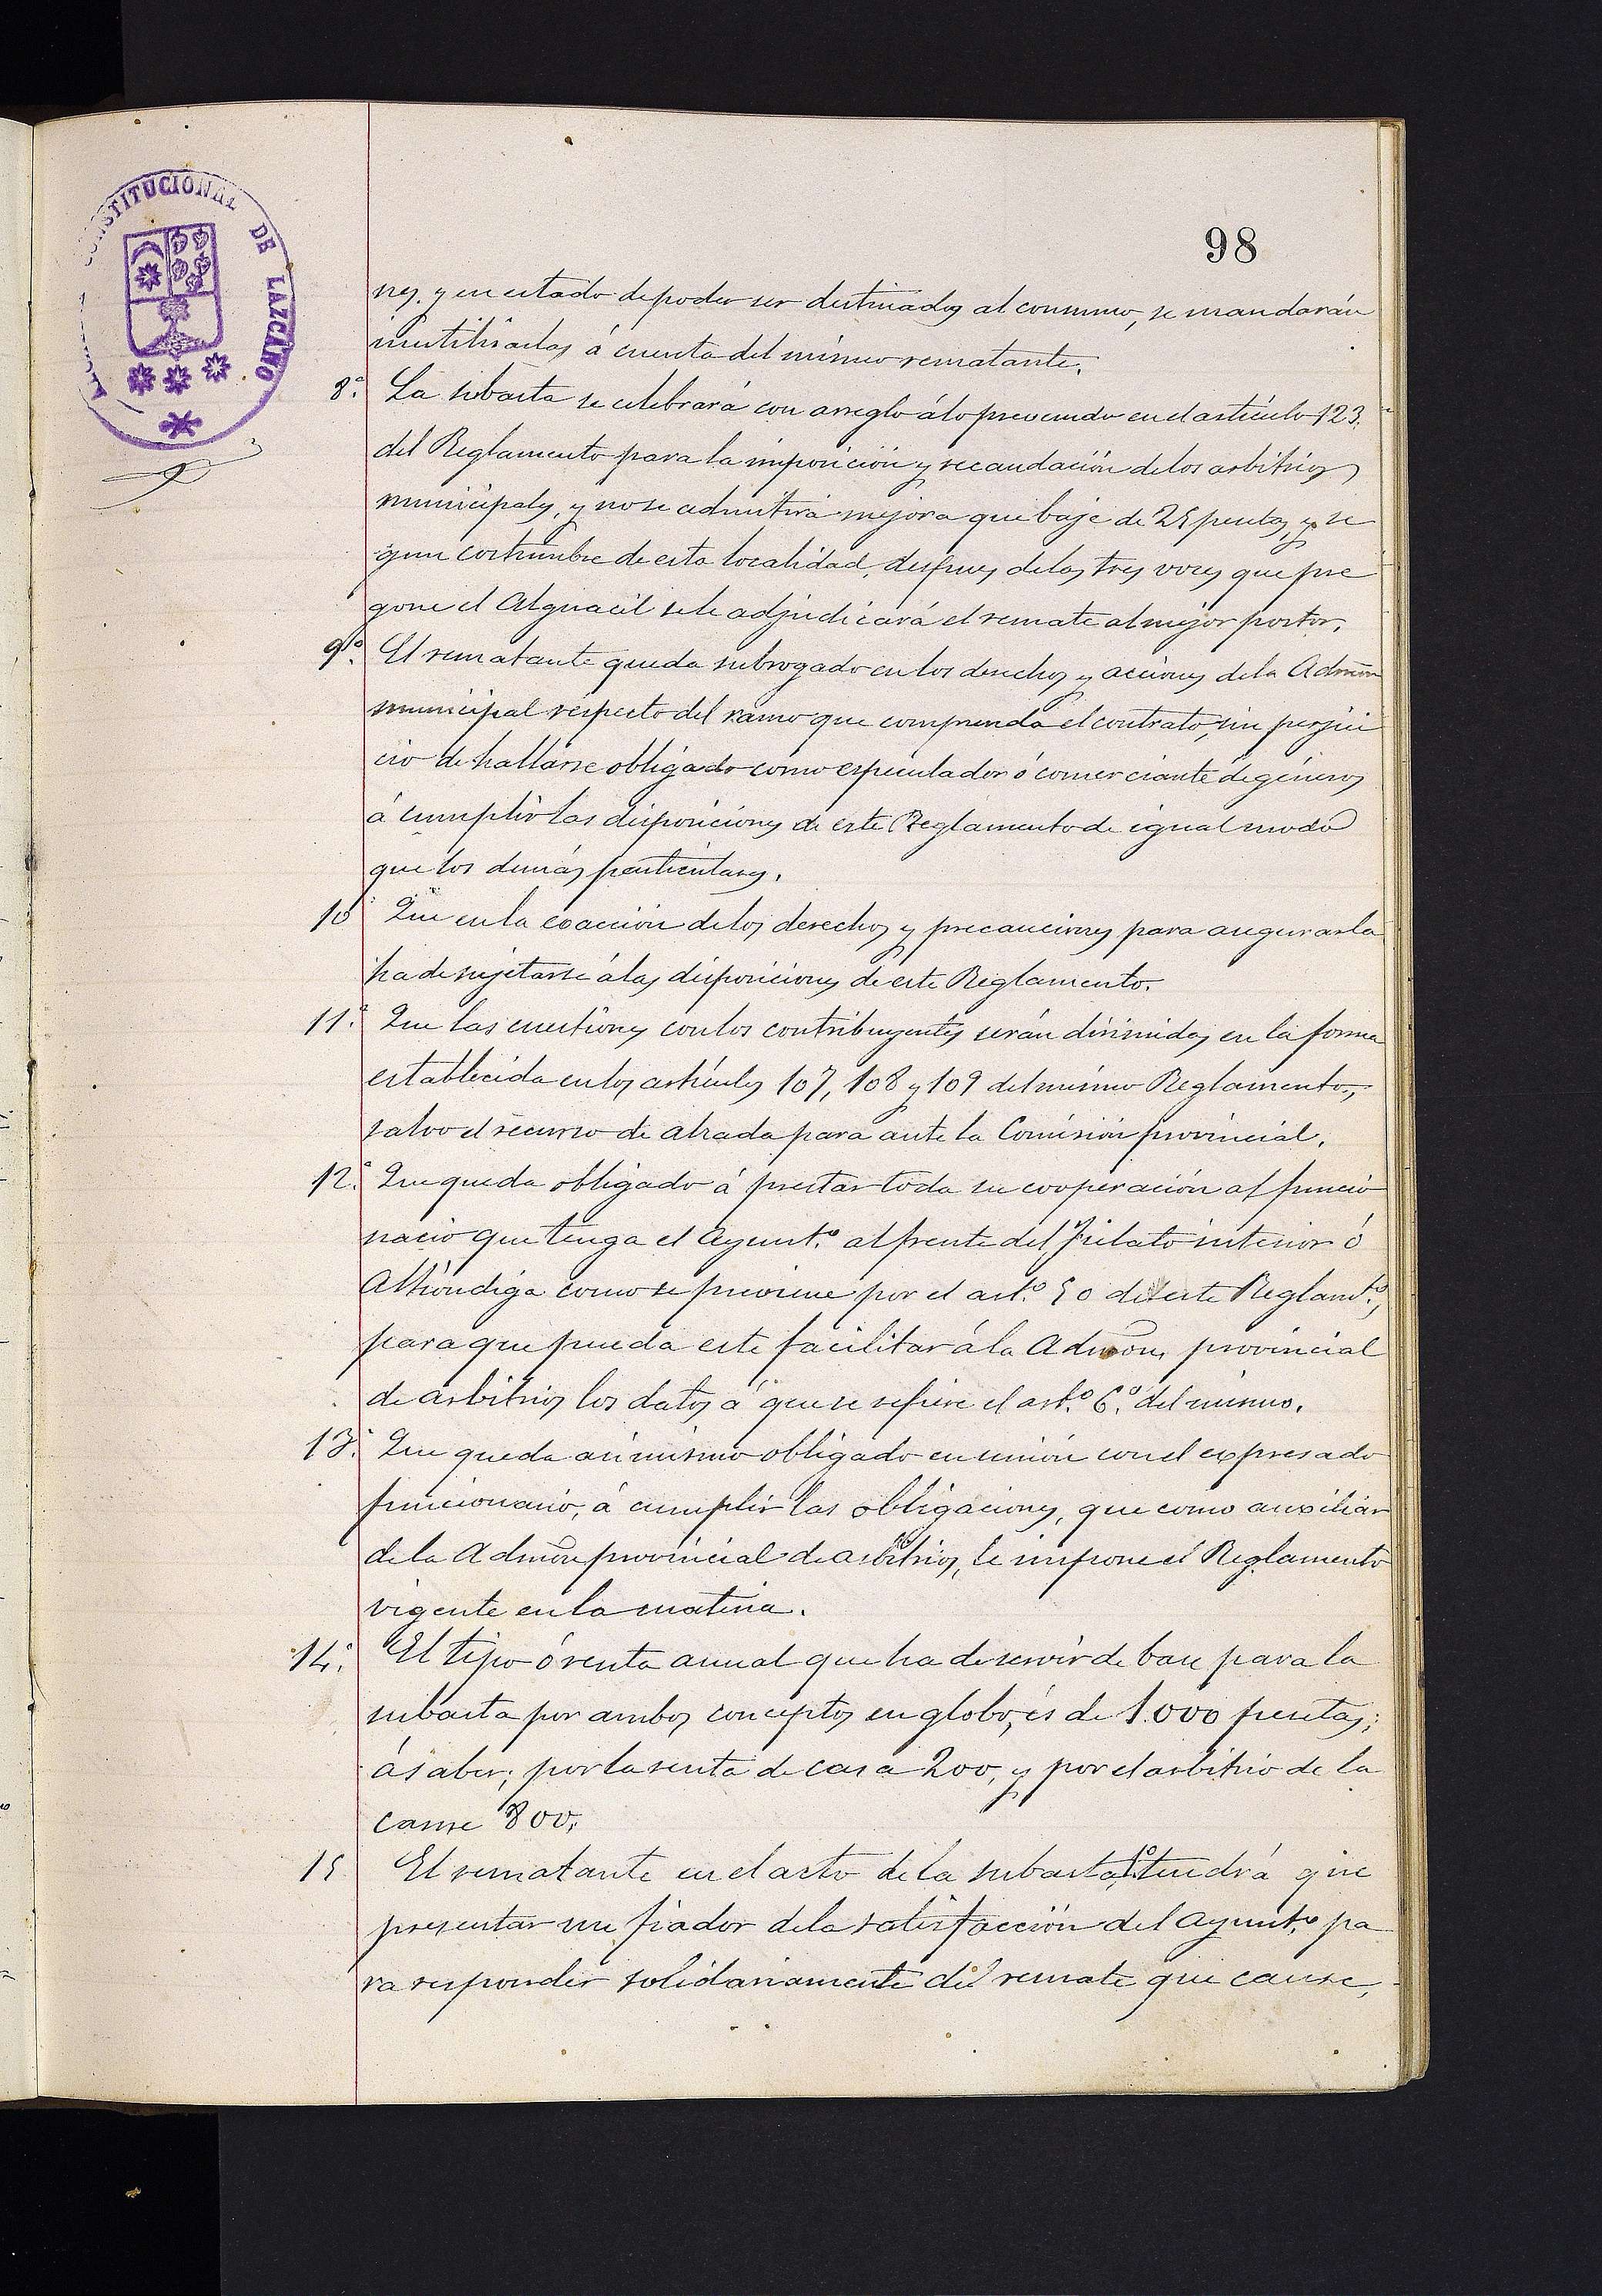 CONSTITUCIONAL DE LAZCANO
98
nes, y en estado de poder ser destinados al consumo, se mandarán
inutilizarlas á cuenta del mismo rematante.
8ª. La subasta se celebrará con arreglo á lo prevenido en el artículo 123.
del Reglamento para la imposición y recaudación de los arbitrios
municipales, y no se admitirá mejora que baje de 25 pesetas, y se
gun costumbre de esta localidad, despues de las tres voces que pre
gone el Alguacil se le adjudicará el remate al mejor postor.
9ª. El rematante queda subrogado en los derechos y acciones de la Admón
municipal respecto del ramo que comprenda el contrato, sin perjui
cio de hallarse obligado como especulador ó comerciante de géneros
á cumplir las disposiciones de este Reglamento de igual modo
que los demás particulares.
10ª Que en la exacción de los derechos y precauciones para asegurarla
ha de sujetarse á las disposiciones de este Reglamento.
11ª. Que las cuestiones con los contribuyentes serán dirimidas en la forma
establecida en los artículos 107, 108 y 109 del mismo Reglamento,
salvo el recurso de alzada para ante la Comisión provincial.
12ª. Que queda obligado á prestar toda su cooperación al funcio
nario que tenga el Ayunt.º al frente del Fielato interior ó
Alhóndiga como se previene por el art.º 50 de este Reglamt.º,
para que pueda este facilitar á la Admón, provincial
de arbitrios los datos á que se refiere el art.º 6.º del mismo.
13ª. Que queda asimismo obligado en unión con el expresado
funcionario, á cumplir las obligaciones, que como auxiliar
de la Admón provincial de arbitrios, le impone el Reglamento
vigente en la materia.
14ª. El tipo ó renta anual que ha de servir de base para la
subasta por ambos conceptos en globo, és de 1.000 pesetas;
á saber; por la renta de casa 200, y por el arbitrio de la
carne 800.
15 El rematante en el acto de la subasta, 1º tendrá que
presentar un fiador de la satisfacción del Ayunt.º pa
ra responder solidariamente del remate que cause,